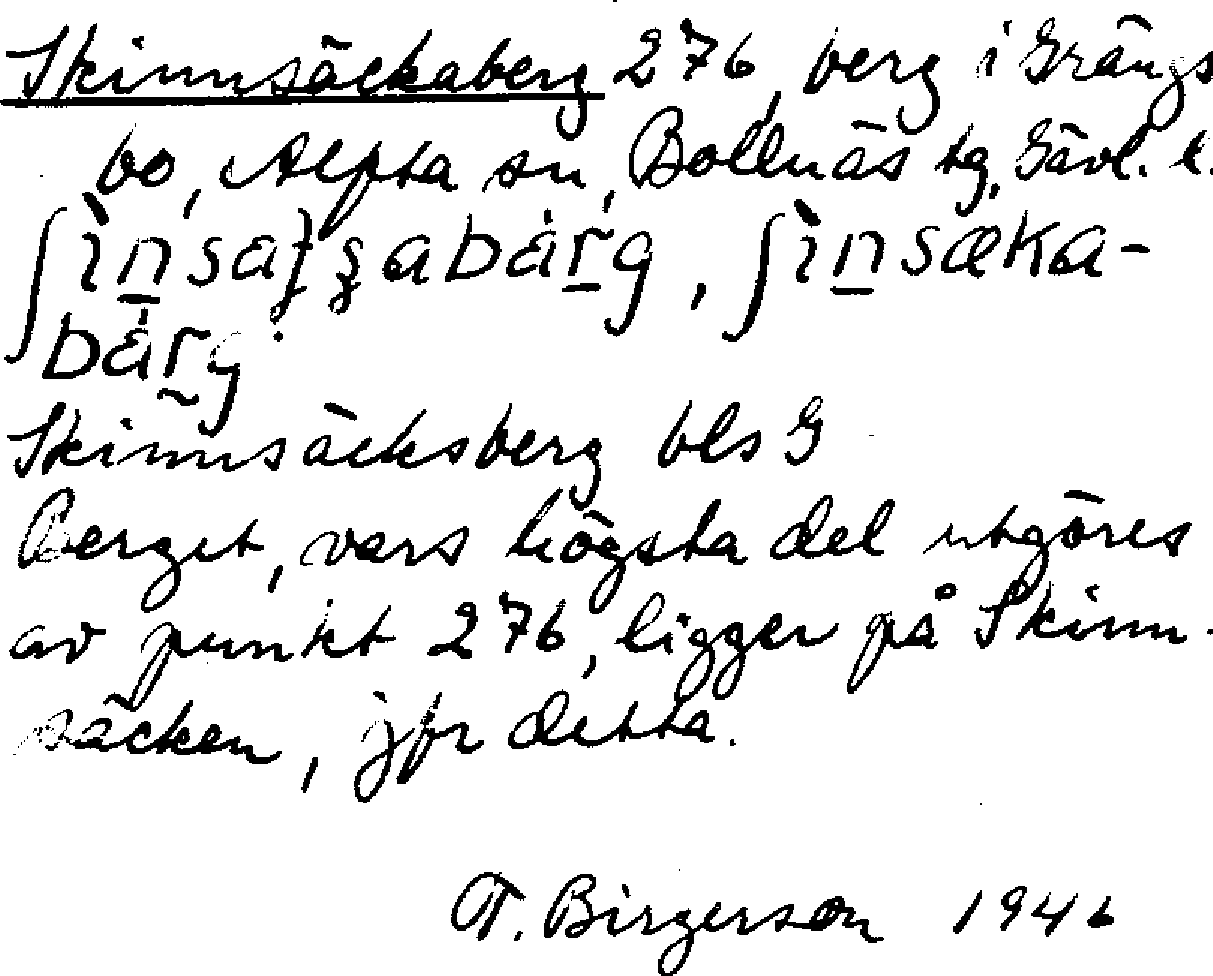 Skinnsäckaberg 276, berg i Grängs
bo, Alfta sn, Bollnäs tg, Gävl. l.
bärg.
Skinnsäcksberg bls G
Berget, vars högsta del utgöres
av punkt 276, ligger på Skinn-
säcken, jfr detta.
T. Birgerson 1946